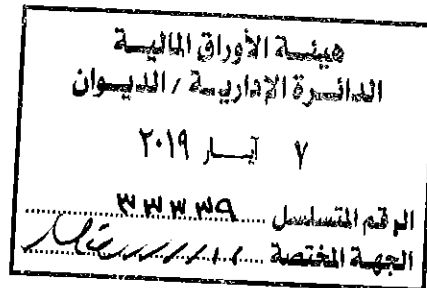 هيئة الأوراق المالية
الدائرة الإدارية / الديوان
٧ آيار ٢٠١٩
الرقم المتسلسل ٣٣٣٣٩
الجهة المختصة